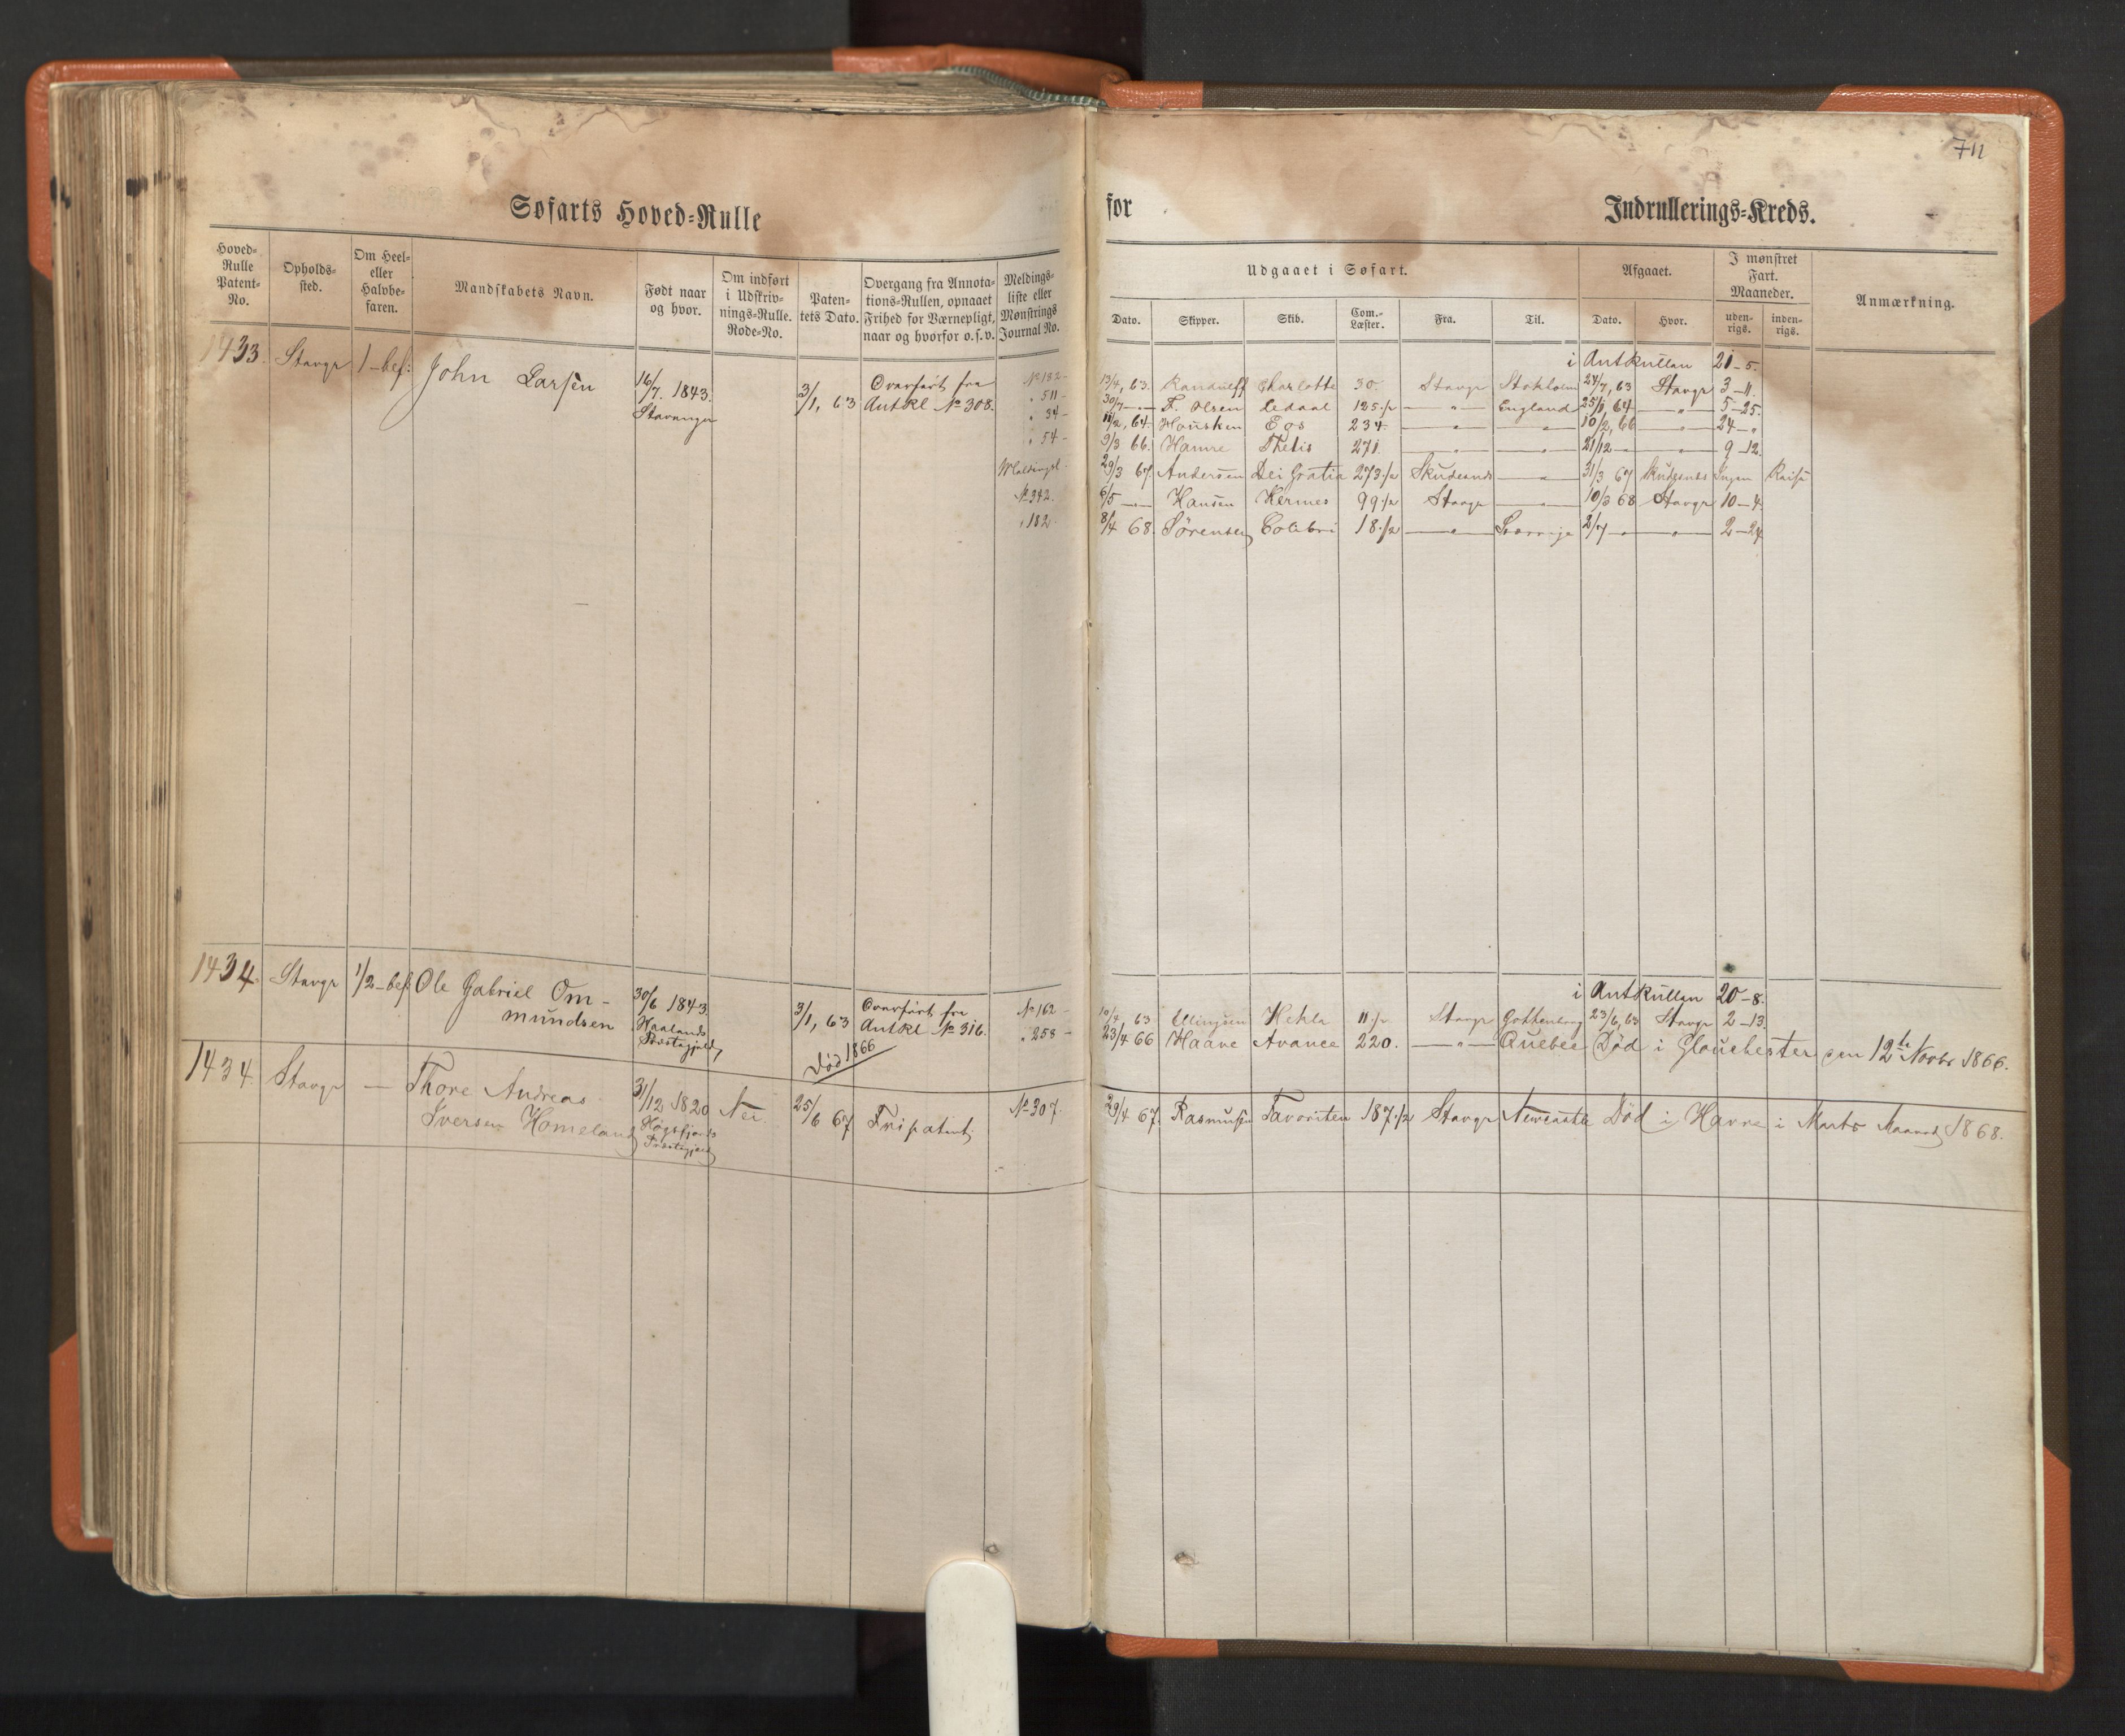 711
Søfarts Hoved-Rulle
for Indrullerings-Kreds.
Hoved-Rulle Patent-No.
Opholds-sted.
Om Heel- eller Halvbe-faren.
Mandskabets Navn.
Født naar og hvor.
Om indført i Udskriv-nings-Rulle. Rode-No.
Paten-tets Dato.
Overgang fra Annota-tions-Rullen, opnaaet Frihed for Værnepligt, naar og hvorfor o.s.v.
Meldings-liste eller Mønstrings Journal No.
Udgaaet i Søfart.
Afgaaet.
I mønstret Fart. Maaneder.
Anmærkning.
Dato. Skipper. Skib. Com.-Læster. Fra. Til. Dato. Hvor. uden-rigs. inden-rigs.
1433. Stavgr 1-bef: John Larsen 16/7. 1843. Stavanger 3/1, 63 Overført fra AntRl No 308.
i AntRullen 21-5.
No 132- 13/4, 63. Charlotte 30. Stavgr Stokholm 24/7, 63 Stavgr 3-11.
" 511- 30/7 -"- F. Olsen Ledaal 125 1/2 -"- England 25/1, 64 -"- 5-25.
" 34- 11/2, 64. Housken Eos 234. -"- -"- 10/2, 66 -"- 24-"
" 54- 9/3 66. Hamre Thetis 271. -"- -"- 21/12 -"- -"- 9-12.
29/3 67. Andersen Dei Gratia 273 1/2 -"- 31/3 67 Skudesnes Ingen Reise
No 342. 6/5 -"- Hansen Hermes 99 1/2 Stavgr -"- 10/3 68 Stavgr 10-4.
" 182. 8/4 68. Sørensen Colibri 18 1/2 -"- Sverrige 2/7 -"- -"- 2-24
1434. Stavgr 1/2-bef: Ole Gabriel Om-mundsen 30/6 1843. Haalands Præstegjeld 3/1, 63 Overført fra AntRl No 316.
Død 1866
i AntRullen 20-8.
No 162- 10/4 63 Ellingsen Hekla 11 1/2 Stavgr Gothenborg 23/6, 63 Stavgr 2-13.
" 258- 23/4 66 Haave Avance 220. -"- Quebec Død i Glouchester den 12te Novbr 1866.
1434. Stavgr - Thore Andreas Iversen Homeland 31/12 1820 Høgsfjords Præstegjeld Nei. 25/6 67 Fripatent No 307.
29/4 67. Rasmusen Favoriten 187 1/2 Stavgr Newcastle Død i Havre i Marts Maaned 1868.